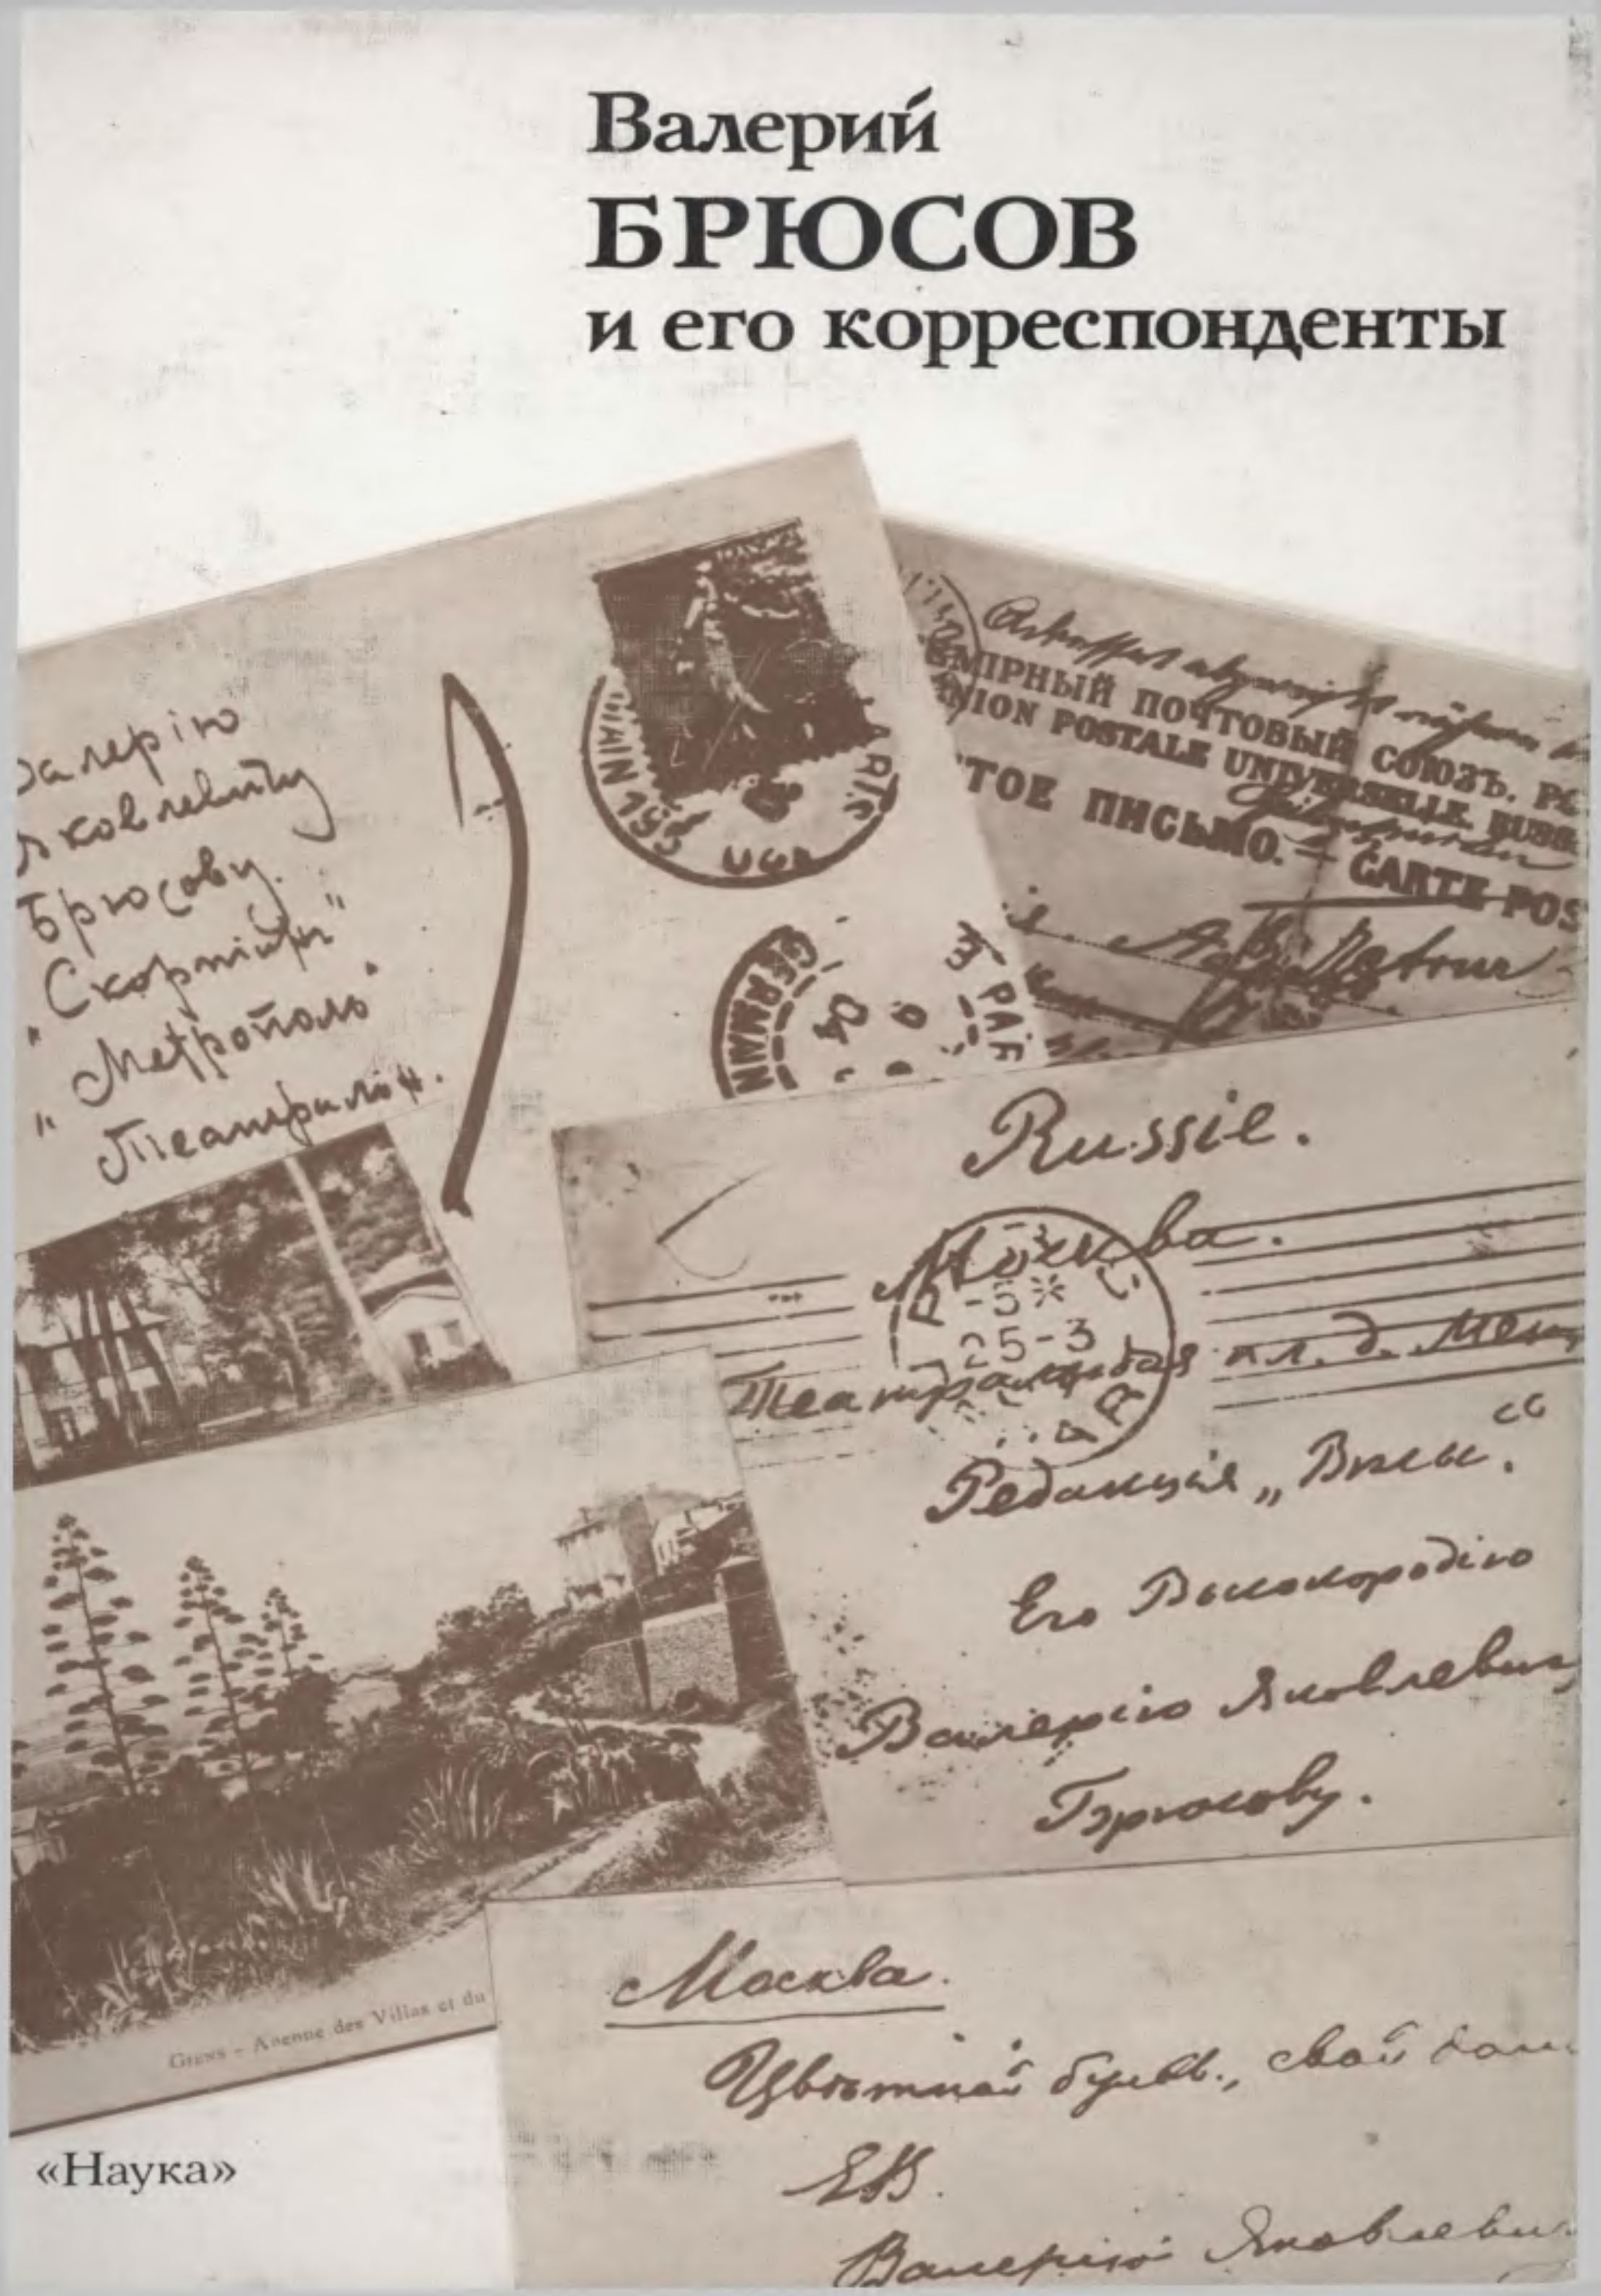 Валерий
БРЮСОВ
и его корреспонденты
Валерію
Яковлевичу
Брюсову.
„Скорпіонъ"
„Метрополь"
Театральн.
ПОЧТОВЫЙ СОЮЗЪ.
UNION POSTALE UNIVERSELLE.
ПИСЬМО. — CARTE
Retour
GERMAIN
04
Russie.
Москва.
-5*
25-3
Театральная пл. д.
Редакція „Вѣсы".
Его Высокородію
Валерію Яковлевичу
Брюсову.
Giens - Avenue des Villas et du
Москва.
Цвѣтной бульв., свой домъ
ЕВ.
Валерію Яковлеви
«Наука»